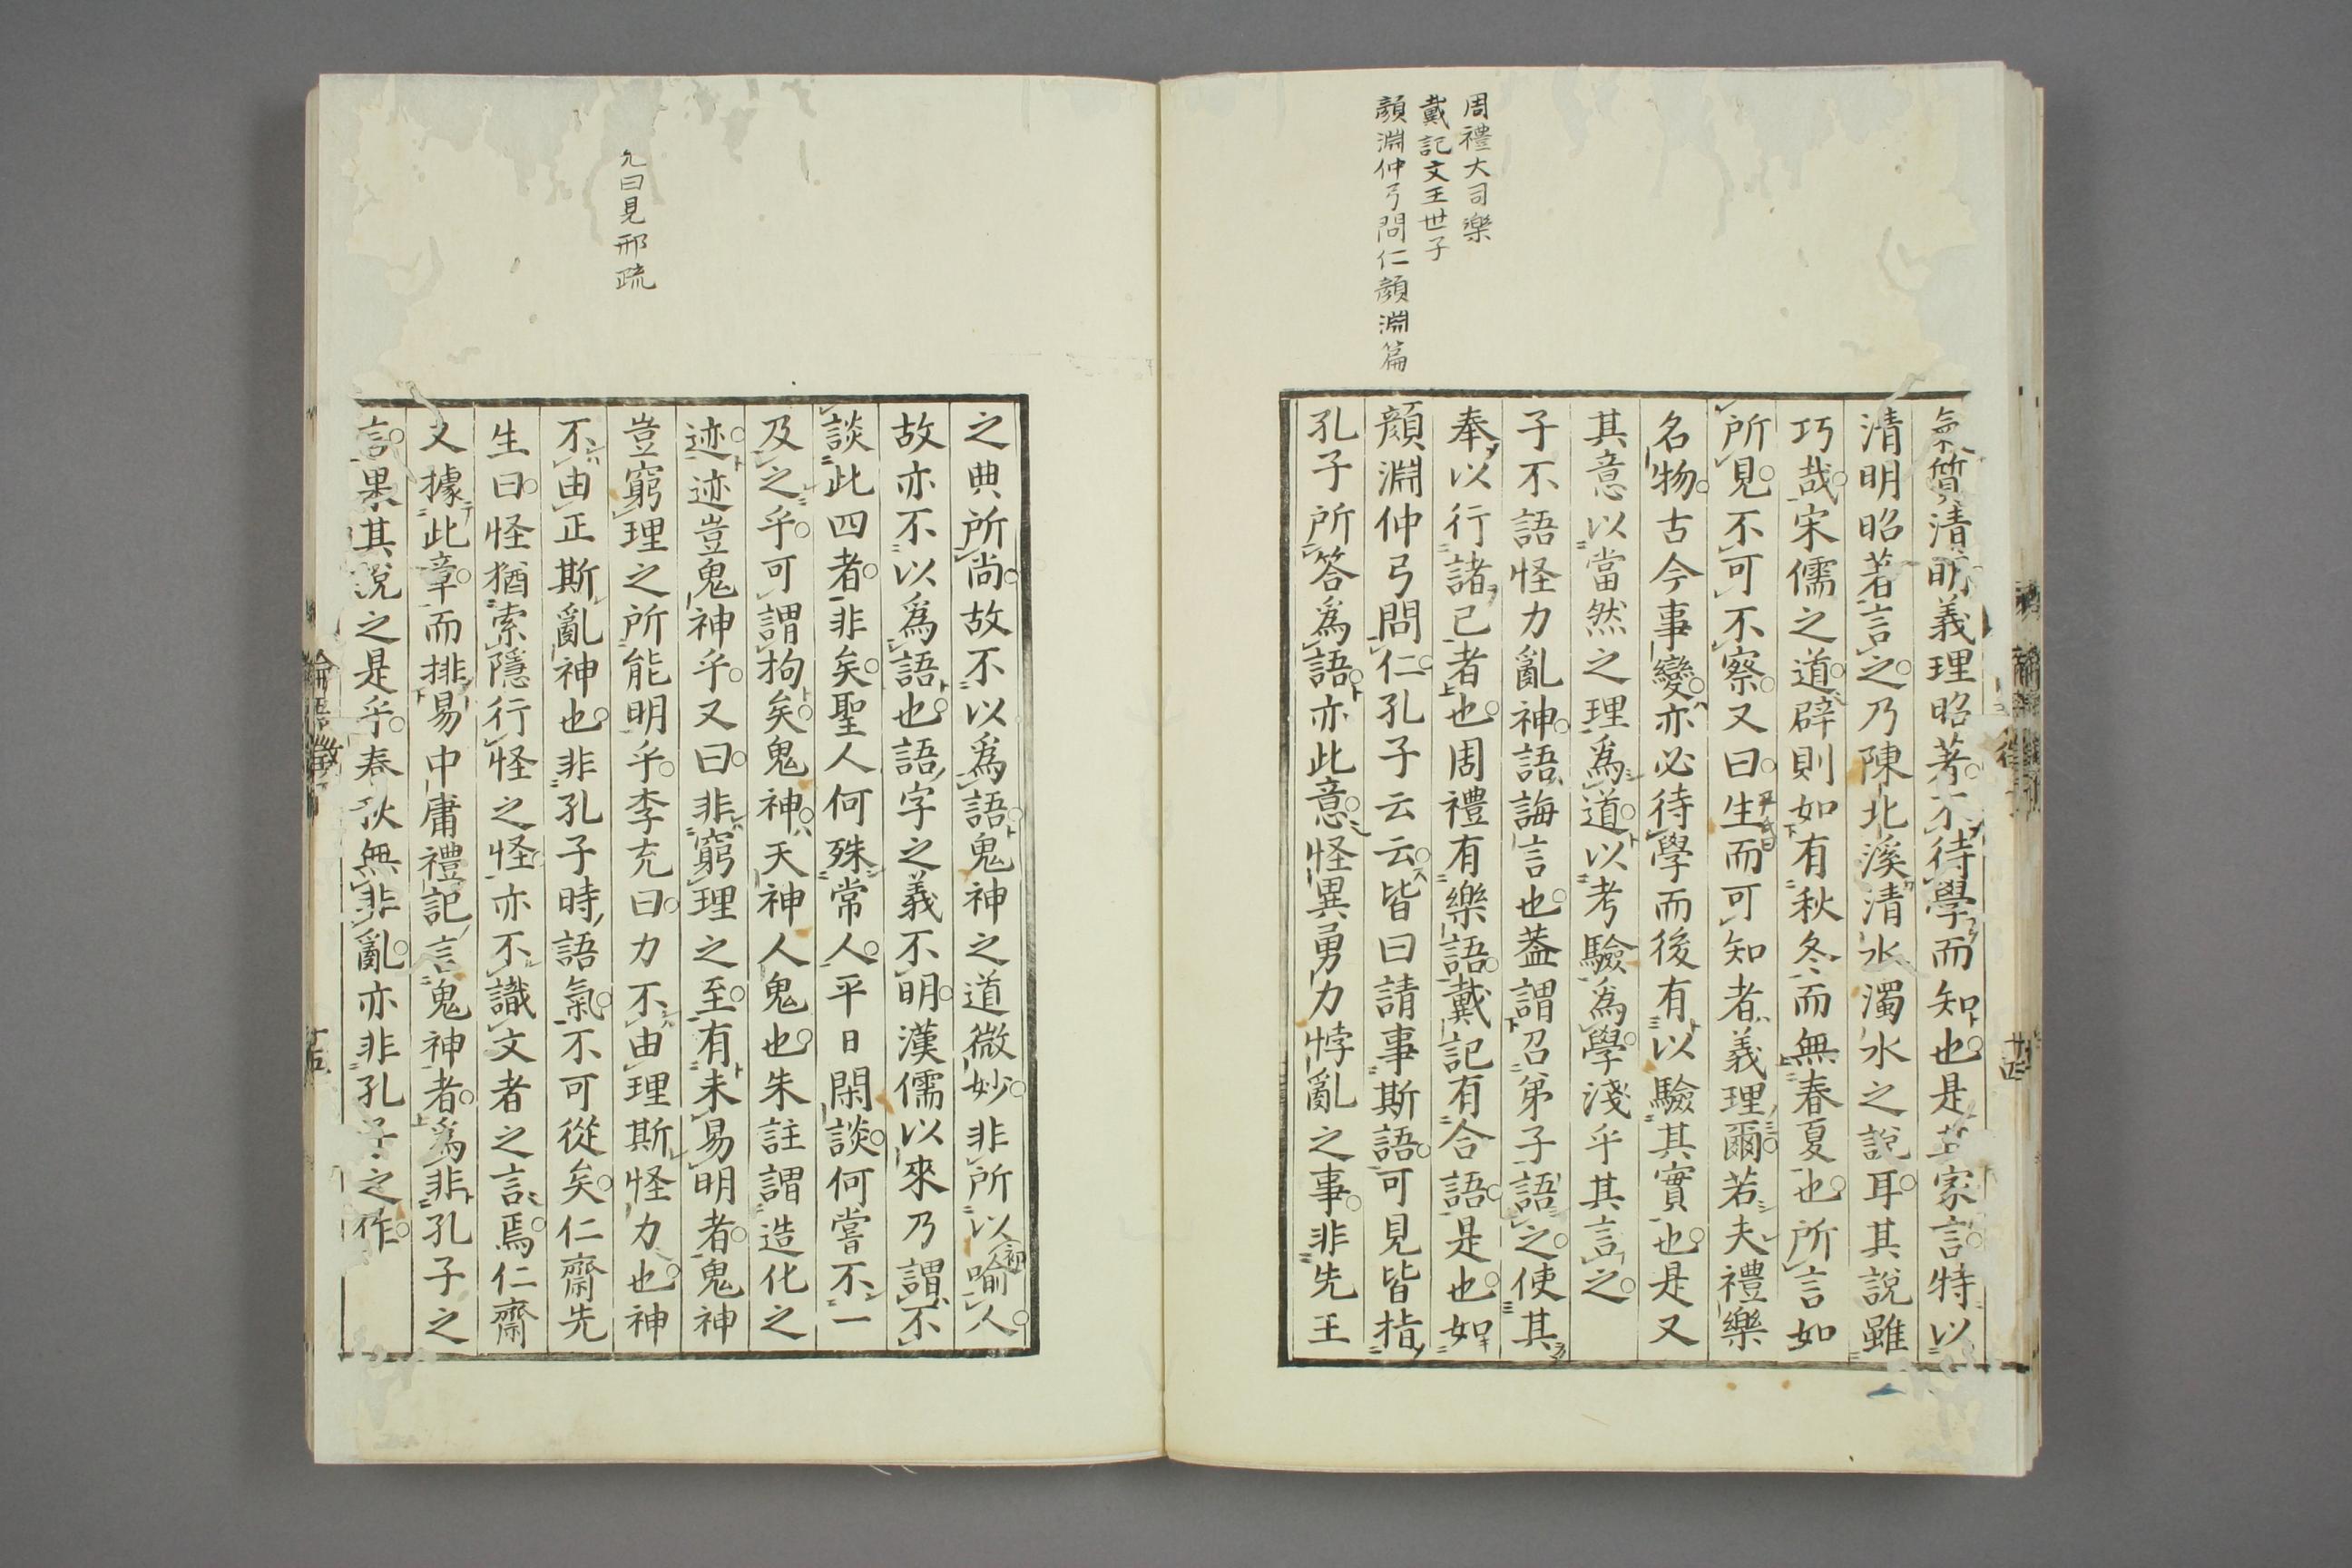 周禮大司樂
戴記文王世子
顏淵仲弓問仁顏淵篇
氣質清明義理昭著不待學而知也是其家言特以
清明昭著言之乃陳北溪清水濁水之說耳其說雖
巧哉宋儒之道辟則如有秋冬而無春夏也所言如
所見不可不察又曰生而可知者義理爾若夫禮樂
尹氏曰
名物古今事變亦必待學而後有以驗其實也是又
其意以當然之理爲道以考驗爲學淺乎其言之
子不語怪力亂神語誨言也蓋謂召弟子語之使其
奉以行諸己者也周禮有樂語戴記有合語是也如
顏淵仲弓問仁孔子云云皆曰請事斯語可見皆指
孔子所答爲語亦此意怪異勇力悖亂之事非先王
之典所尚故不以爲語鬼神之道微妙非所以喻人
故亦不以爲語也語字之義不明漢儒以來乃謂不
談此四者非矣聖人何殊常人平日閑談何嘗不一
及之乎可謂拘矣鬼神天神人鬼也朱註謂造化之
迹迹豈鬼神乎又曰非窮理之至有未易明者鬼神
豈窮理之所能明乎李充曰力不由理斯怪力也神
不由正斯亂神也非孔子時語氣不可從矣仁齋先
生曰怪猶索隱行怪之怪亦不識文者之言焉仁齋
又據此章而排易中庸禮記言鬼神者爲非孔子之
言果其說之是乎春秋無非亂亦非孔子之作
允曰見邢疏
論語徵
十五
十四